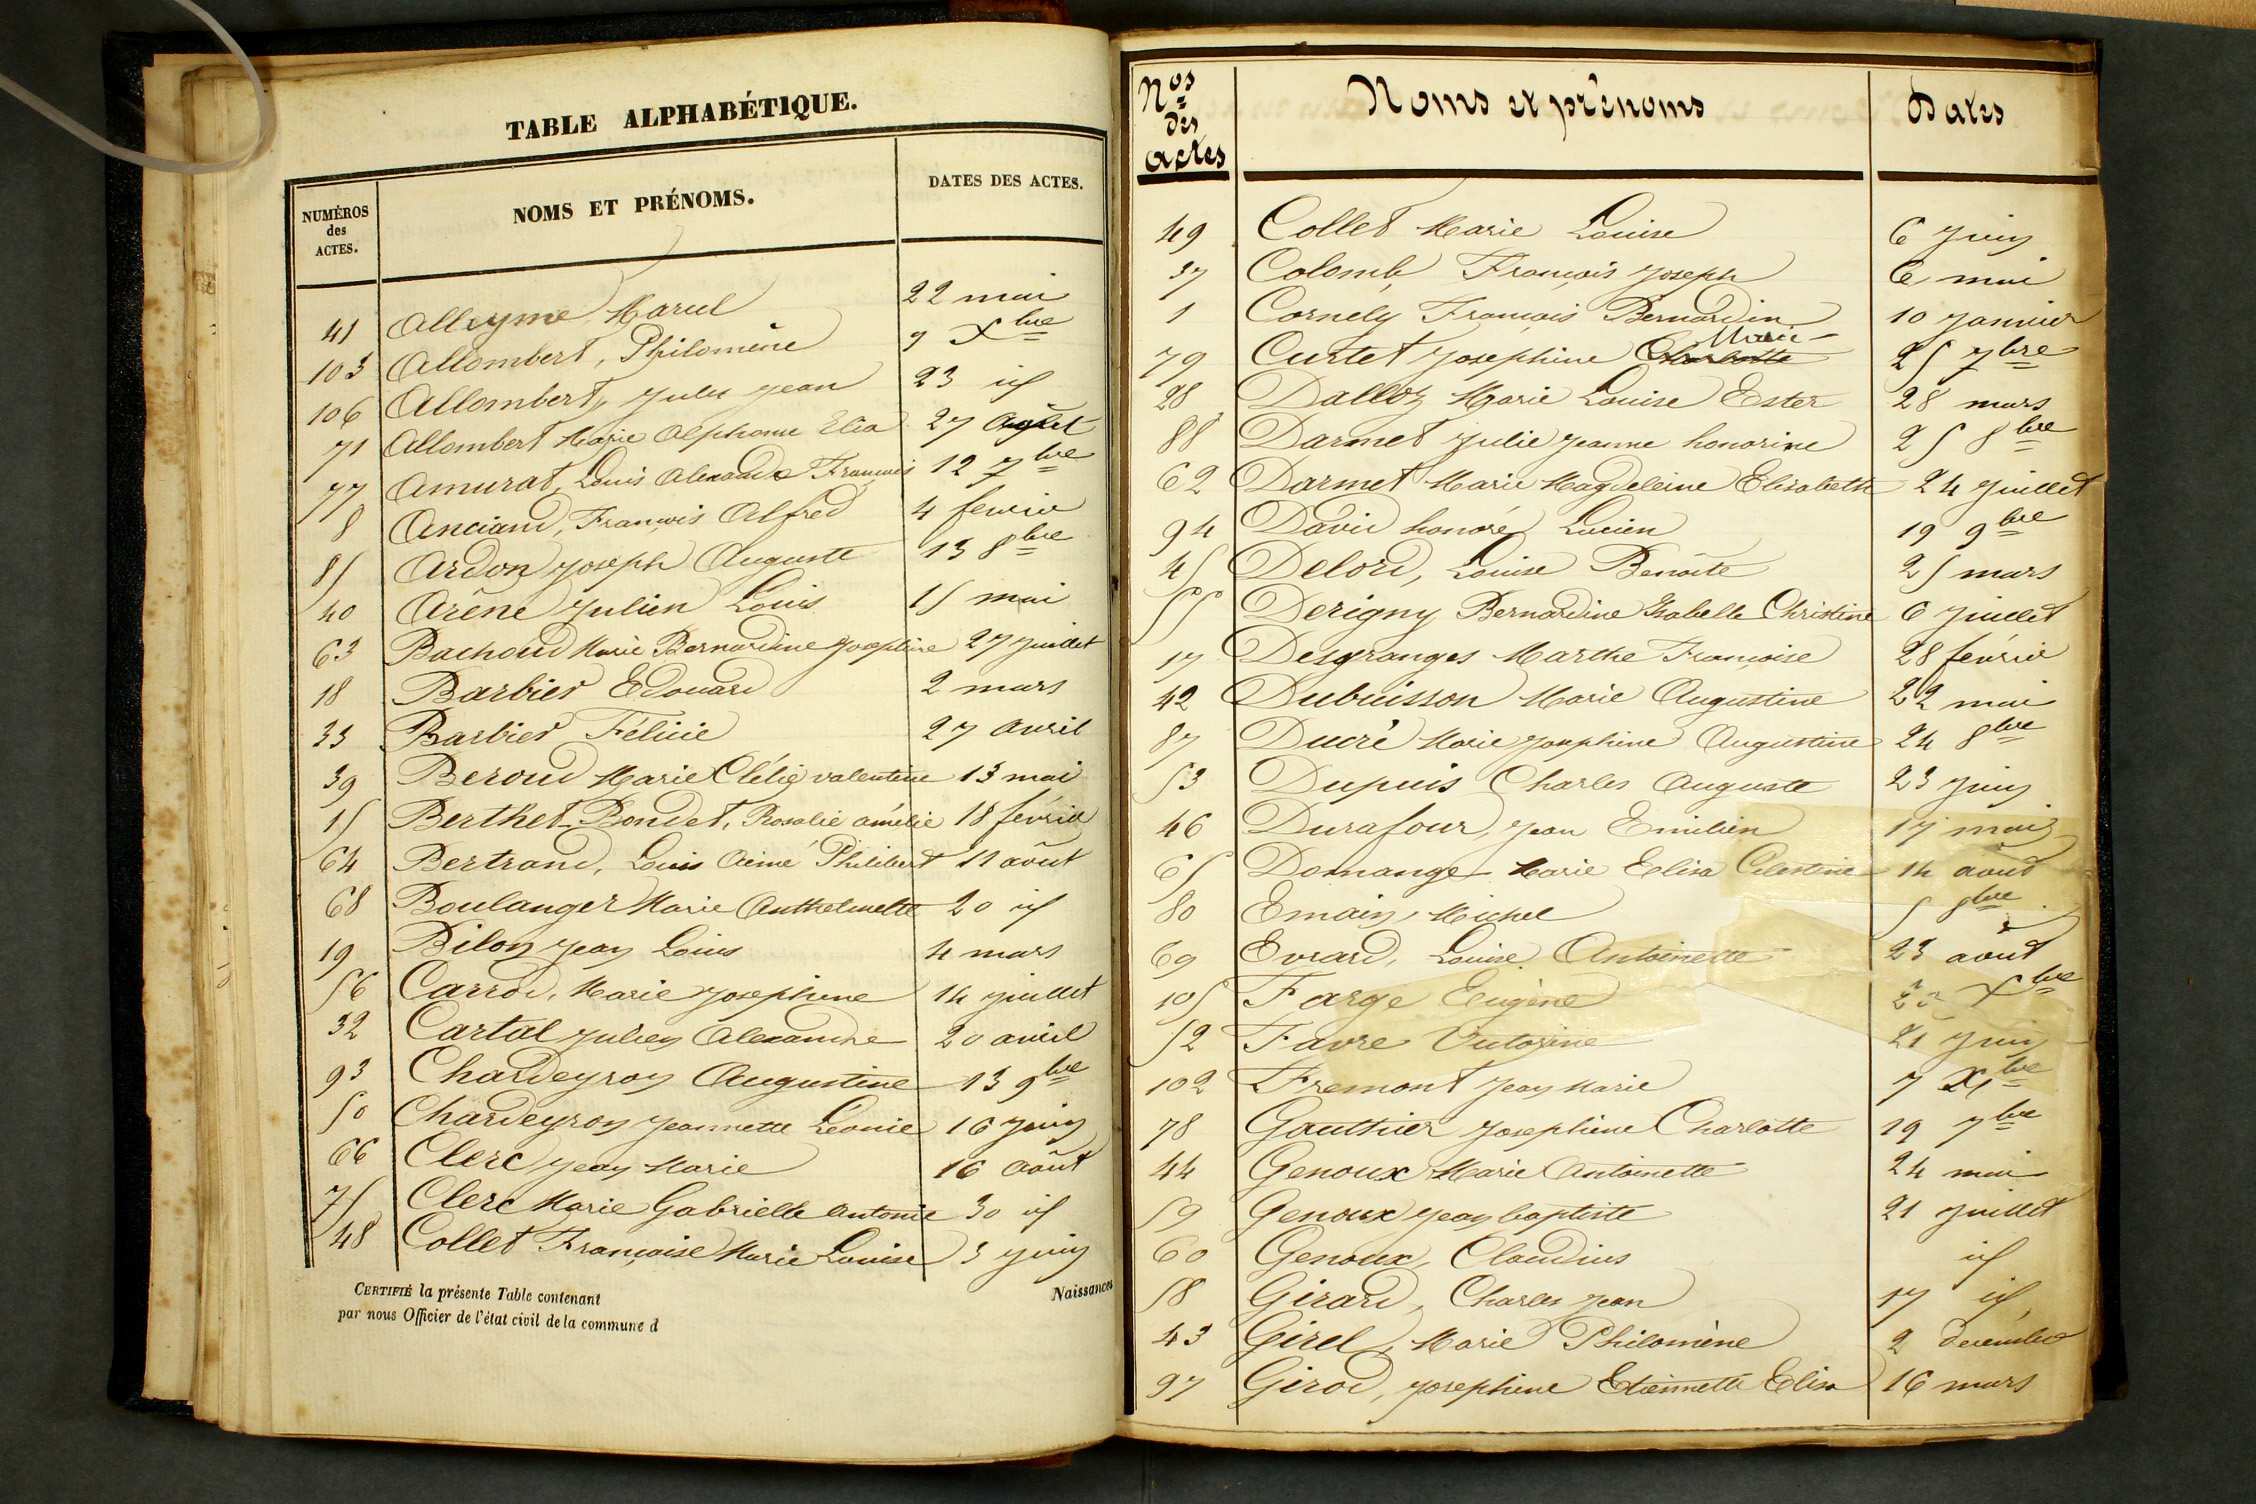 TABLE ALPHABÉTIQUE.
NUMÉROS des ACTES. NOMS ET PRÉNOMS. DATES DES ACTES.
41 Alleyme Marcel 22 mai
103 Allombert, Philomène 9 Xbre
106 Allombert, Jules Jean 23 id
71 Allombert Marie Alphonse Elia 27 Août
77 Amurat, Louis Alexandre François 12 7bre
8 Anciand, François Alfred 4 fevrier
85 Ardon Joseph Auguste 13 8bre
40 Arêne Julien Louis 15 mai
63 Bachoud Marie Bernardine Josephine 27 juillet
18 Barbier Edouard 2 mars
33 Barbier Félicie 27 avril
39 Beroud Marie Clélie valentine 13 mai
15 Berthet-Bondet, Rosalie amélie 18 février
64 Bertrand, Louis Aimé Philibert 11 août
68 Boulanger Marie Anthelmette 20 id
19 Bilon Jean Louis 4 mars
56 Carrod, Marie Josephine 14 juillet
32 Cartal Julien Alexandre 20 avril
93 Chardeyron Augustine 13 9bre
50 Chardeyron Jeannette Leonie 16 juin
66 Clerc Jean Marie 16 Août
75 Clerc Marie Gabrielle Antonie 30 id
48 Collet Françoise Marie Louise 3 juin
CERTIFIÉ la présente Table contenant Naissances
par nous Officier de l'état civil de la commune d
Nos des actes Noms et prénoms Dates
49 Collet Marie Louise 6 juin
37 Colomb, François Joseph 6 mai
1 Cornely François Bernardin 10 janvier
Marie
79 Curtet Josephine Charlotte 25 7bre
28 Dalloz Marie Louise Ester 28 mars
88 Darmet Julie Jeanne honorine 25 8bre
62 Darmet Marie Magdeleine Elisabeth 24 juillet
94 David honoré Lucien 19 9bre
45 Delord, Louise Benoîte 25 mars
55 Derigny Bernardine Isabelle Christine 6 juillet
17 Desgranges Marthe Françoise 28 février
42 Dubuisson Marie Augustine 22 mai
87 Ducré Marie Josephine Augustine 24 8bre
53 Dupuis Charles Auguste 23 juin
46 Durafour, Jean Emilien 17 mai
65 Domange Marie Elisa Celestine 14 août
80 Emain, Michel 5 8bre
69 Evrard, Louise Antoinette 23 août
105 Farge Eugène 23 Xbre
52 Favre Victorine 21 juin
102 Fremont Jean Marie 7 Xbre
78 Gauthier Josephine Charlotte 19 7bre
44 Genoux Marie Antoinette 24 mai
59 Genoux Jean baptiste 21 juillet
60 Genoux, Claudius id
58 Girard, Charles Jean 17 id
43 Girel, Marie Philomène 2 decembre
97 Girod, Josephine Etiennette Elisa 16 mars